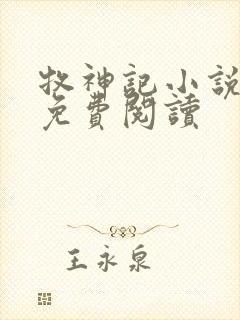 牧神記小說
免費閱讀
王永泉